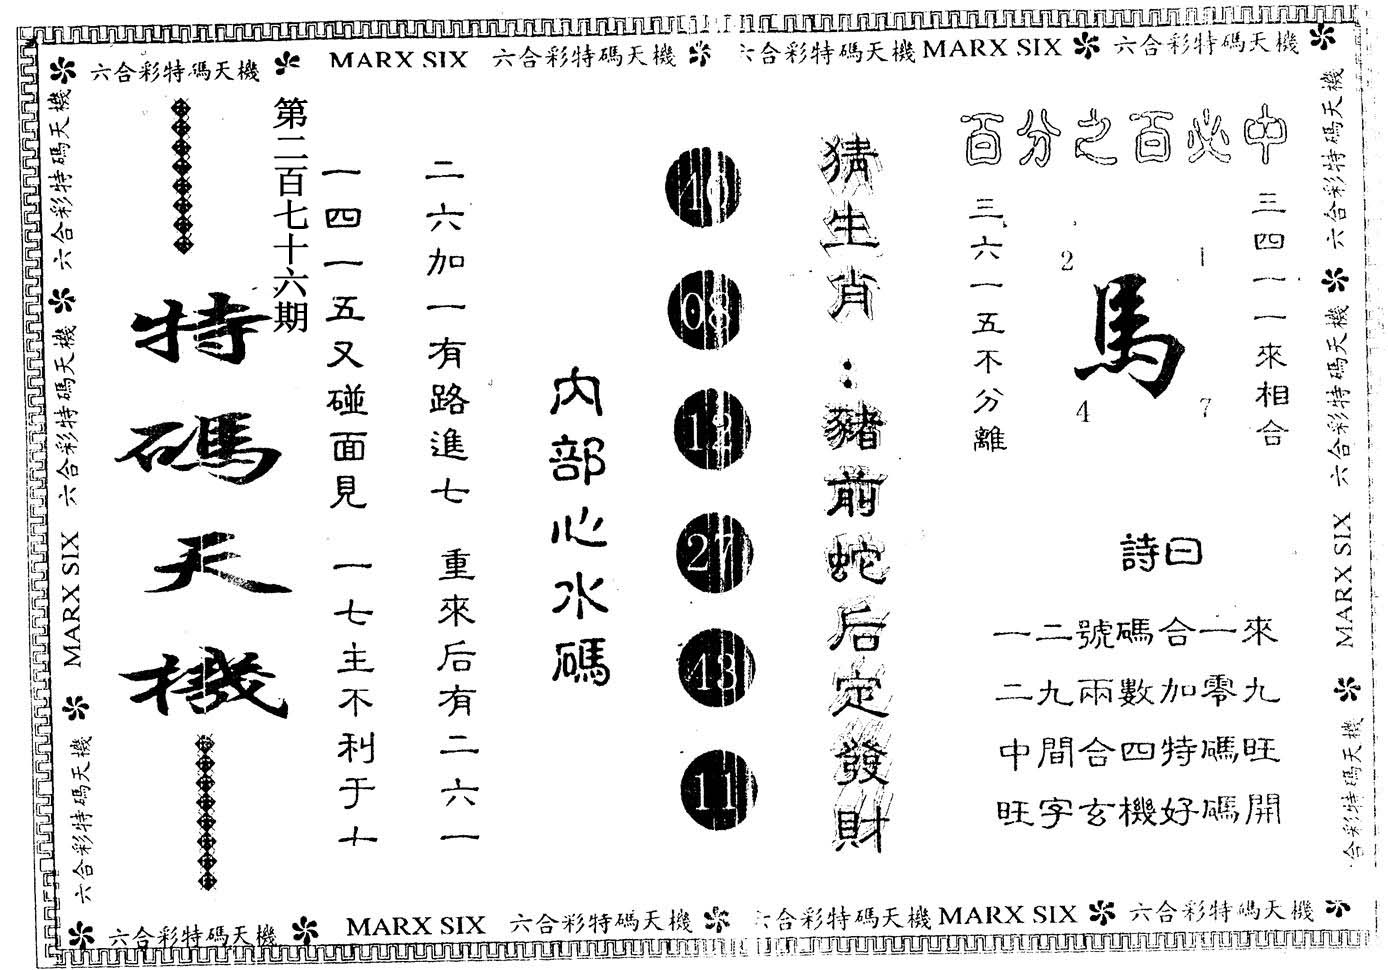 六合彩特碼天機 MARX SIX 六合彩特碼天機 六合彩特碼天機 MARX SIX 六合彩特碼天機
百分之百必中
三四一一來相合
1
2
馬
7
4
三六一五不分離
詩曰
一二號碼合一來
二九兩數加零九
中間合四特碼旺
旺字玄機好碼開
猜生肖：豬前蛇后定發財
08
12
27
43
11
內部心水碼
二六加一有路進七 重來后有二六一
一四一五又碰面見 一七主不利于十
第二百七十六期
特碼天機
六合彩特碼天機 六合彩特碼天機 MARX SIX 六合彩特碼天機
六合彩特碼天機 六合彩特碼天機 MARX SIX 合彩特碼天機
六合彩特碼天機 MARX SIX 六合彩特碼天機 六合彩特碼天機 MARX SIX 六合彩特碼天機